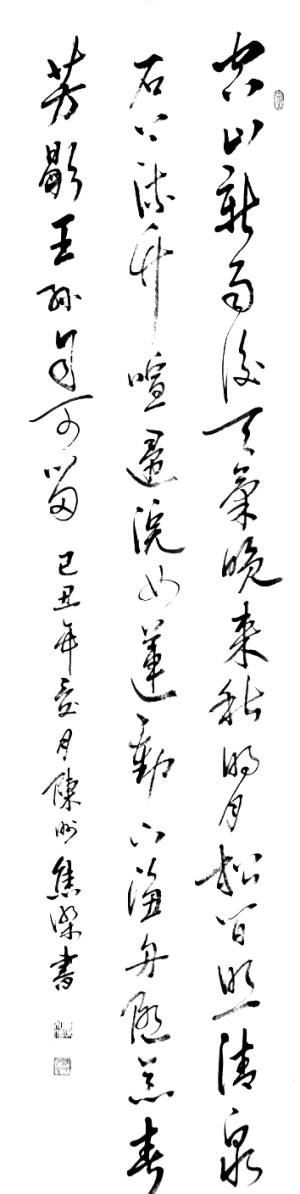 空山新雨後天氣晚來秋明月松間照清泉
石上流竹喧歸浣女蓮動下漁舟隨意春
芳歇王孫自可留 己丑年夏月陳州焦書